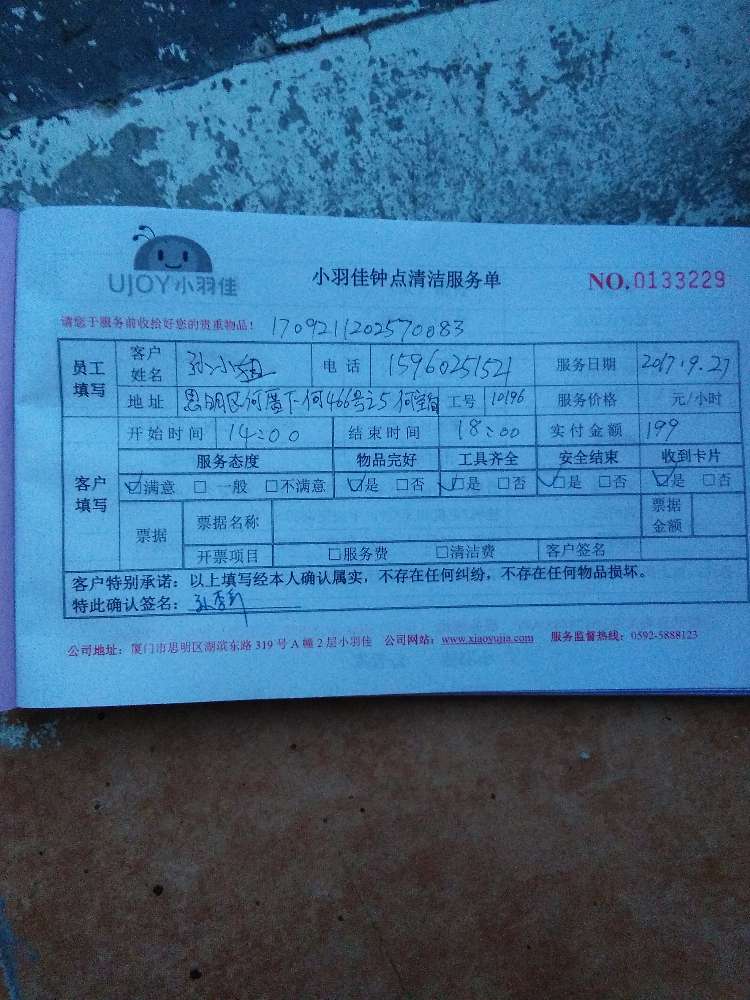 UJOY小羽佳
小羽佳钟点清洁服务单 NO.0133229
请您于服务前收拾好您的贵重物品! 1709211202570083
员工填写 客户姓名 孙小姐 电话 15960251521 服务日期 2017.9.27
地址 思明区何厝下何466号之5 工号 10196 服务价格 元/小时
客户填写 开始时间 14:00 结束时间 18:00 实付金额 199
服务态度 物品完好 工具齐全 安全结束 收到卡片
☑满意 □一般 □不满意 ☑是 □否 ☑是 □否 ☑是 □否 ☑是 □否
票据 票据名称 票据金额
开票项目 □服务费 □清洁费 客户签名
客户特别承诺：以上填写经本人确认属实，不存在任何纠纷，不存在任何物品损坏。
特此确认签名：
公司地址：厦门市思明区湖滨东路 319 号 A 幢 2 层小羽佳 公司网站：www.xiaoyujia.com 服务监督热线：0592-5888123